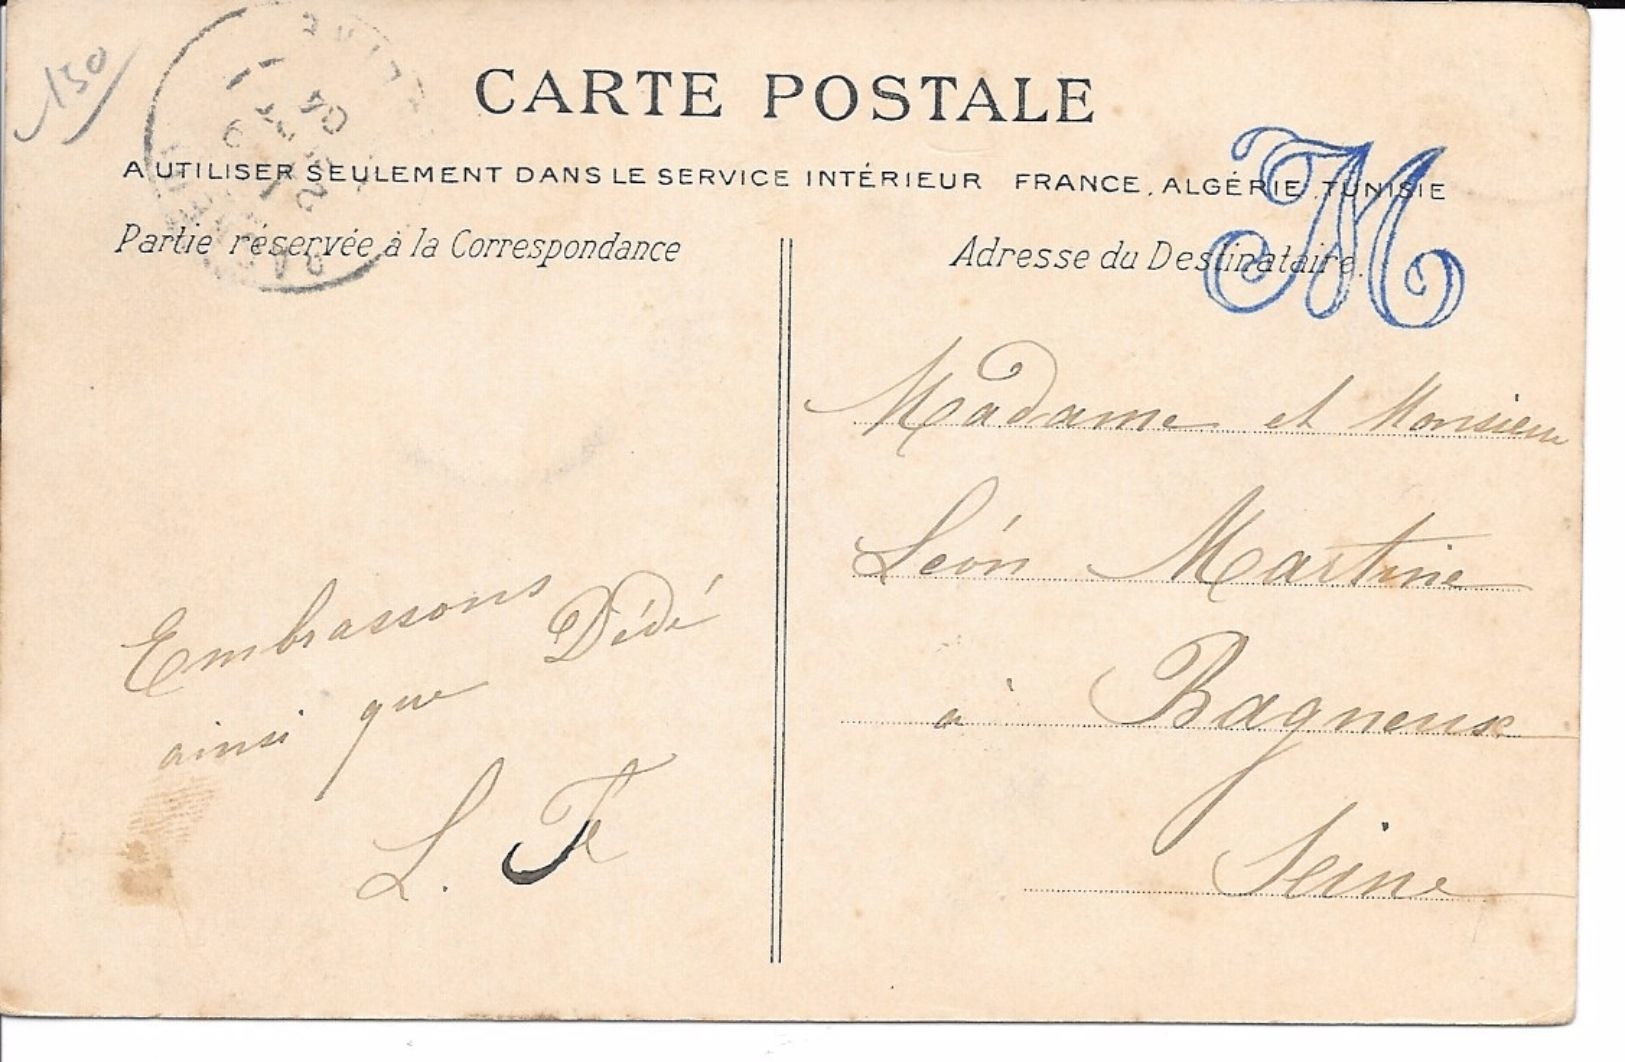 150
CARTE POSTALE
A UTILISER SEULEMENT DANS LE SERVICE INTÉRIEUR FRANCE, ALGÉRIE, TUNISIE
Partie réservée à la Correspondance
Embrassons
ainsi que Dédé
L. F
Adresse du Destinataire.
M
Madame et Monsieur
Léon Martine
à Bagneux
Seine